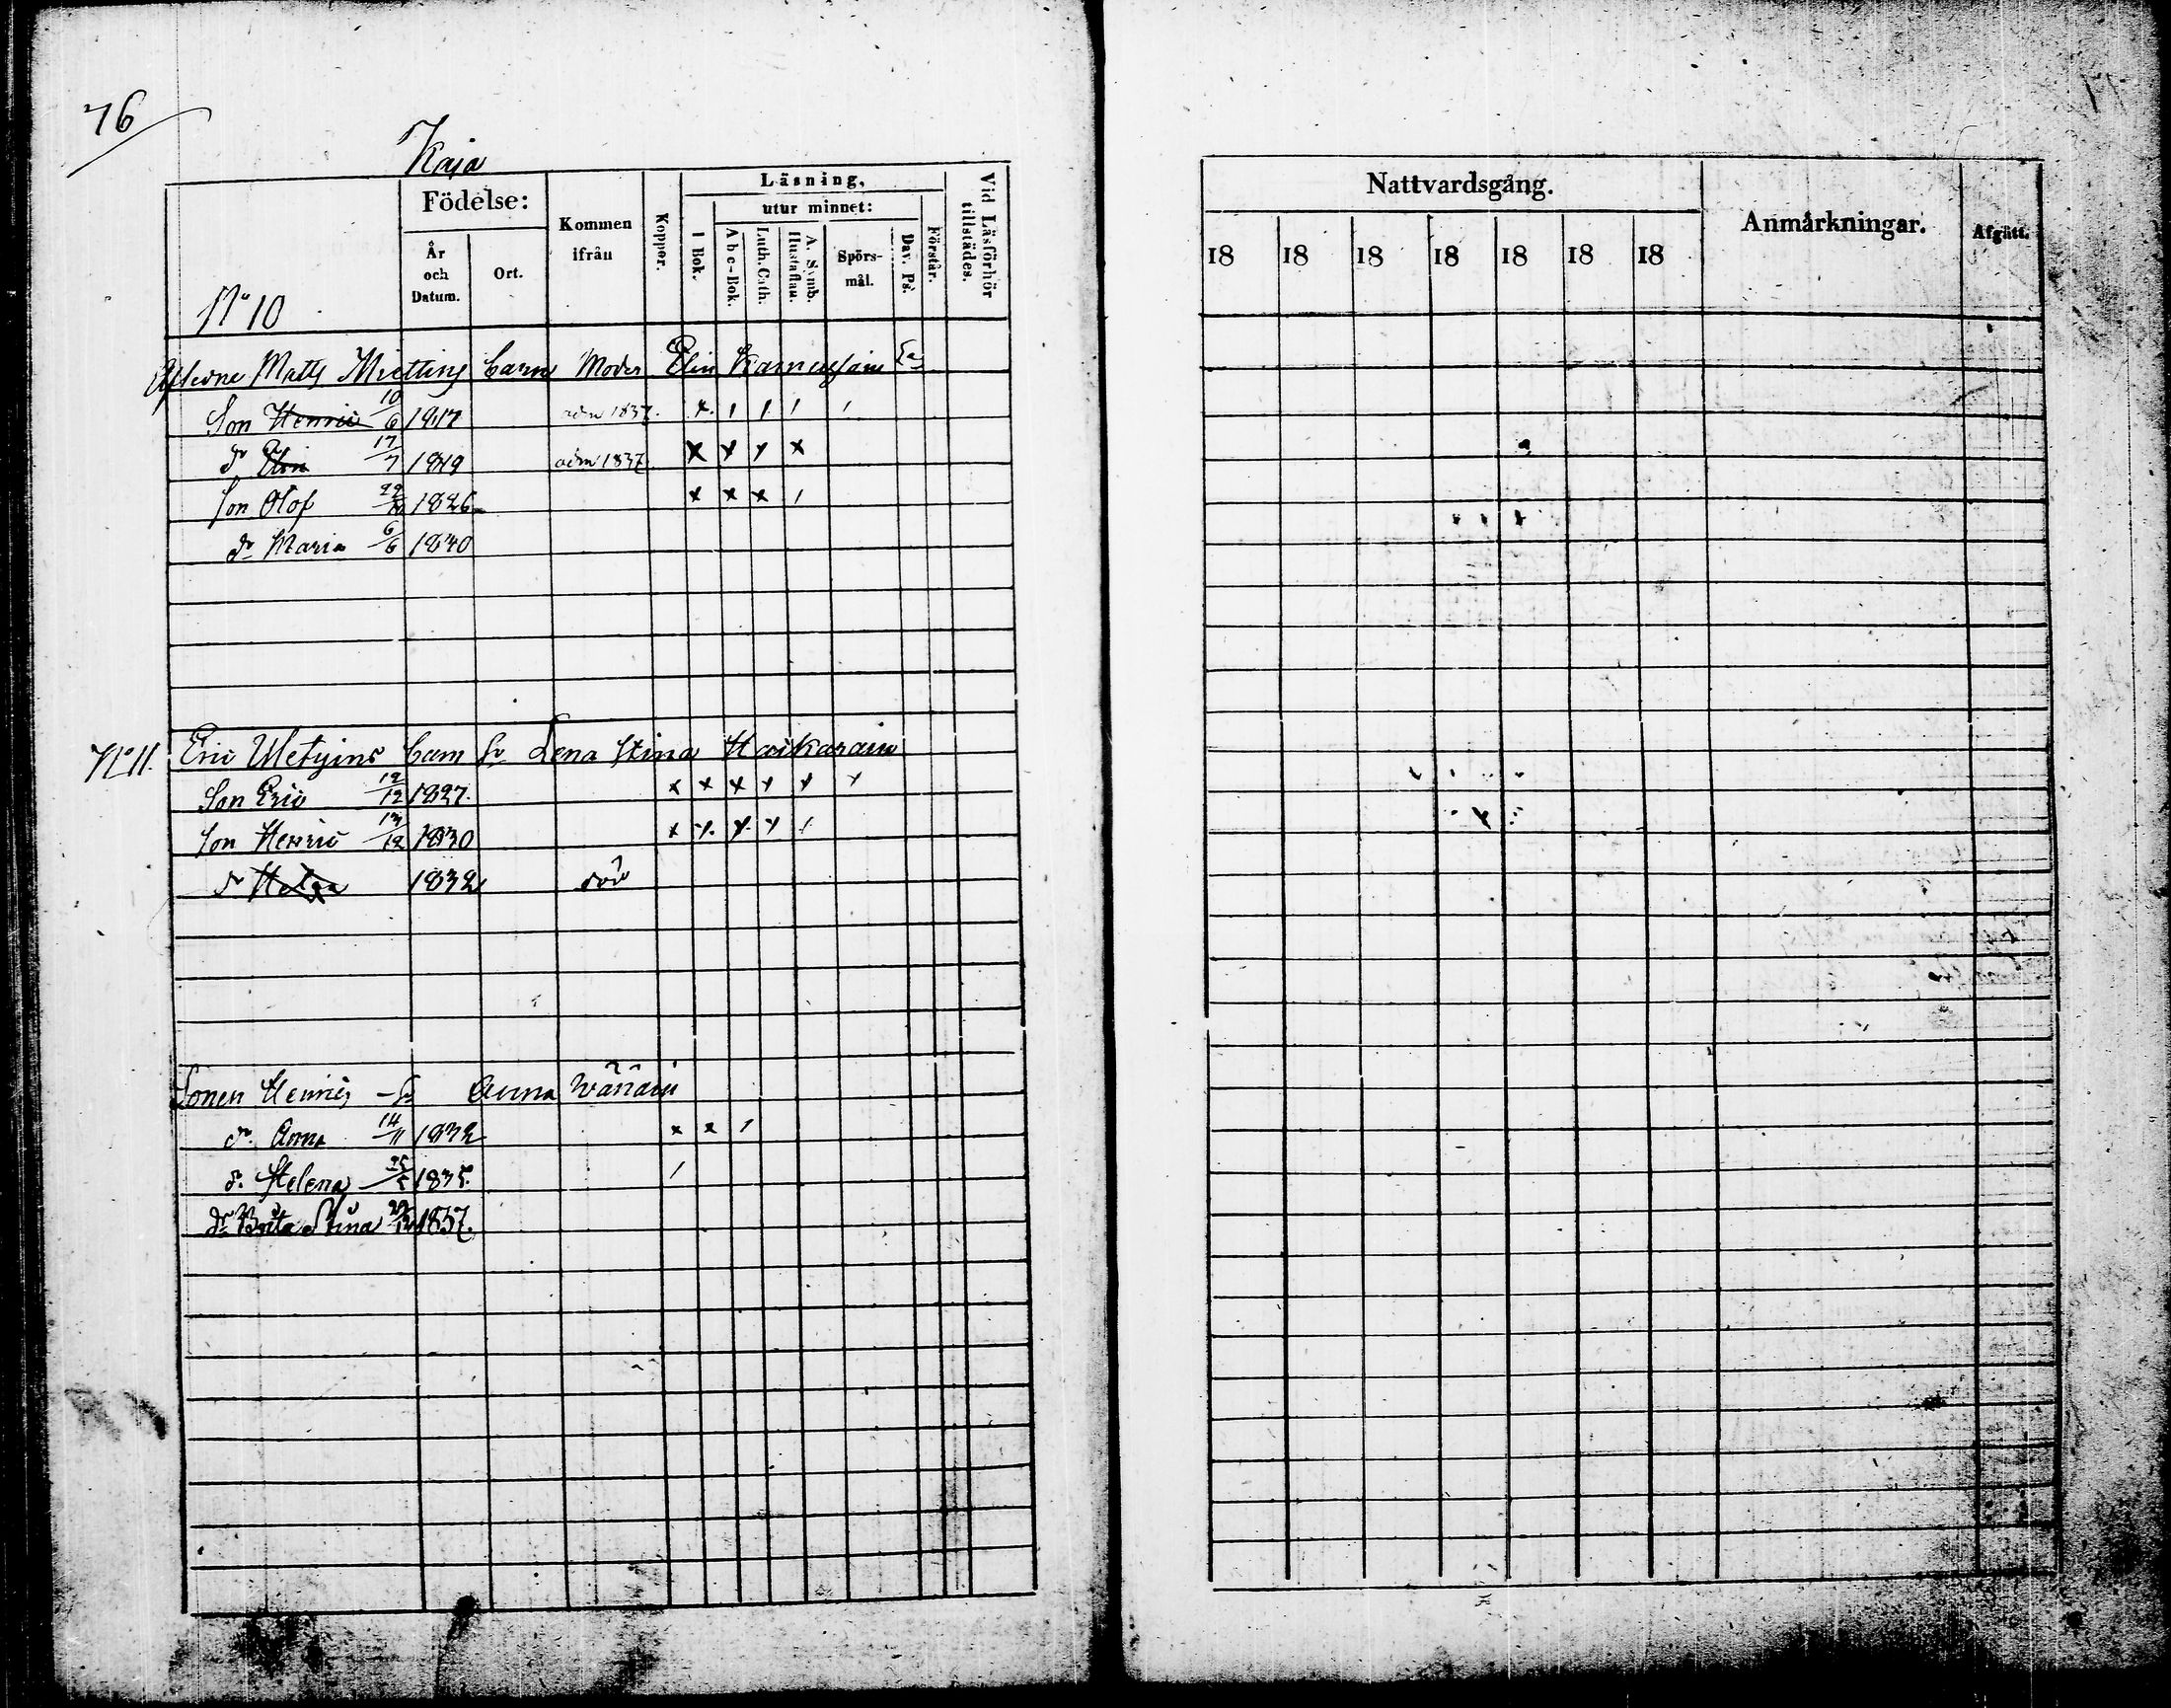 76
77
Kaja
Födelse:
År
och
Datum.
Ort.
Kommen
ifrån
Koppor.
Läsning,
utur minnet:
I Bok.
A b c-Bok.
Luth. Cath.
A. Symb.
Hustaflan.
Spörs-
mål.
Dav. Ps.
Förstår.
Vid Läsförhör
tillstädes.
N° 10
Afledne Matts Mietting barn Moder Elin
Son Henric 10/6 1817 adm 1837. x. / / / /
dr Elin 17/7 1819 adm 1837 x x x x
Son Olof 1826 x x x /
dr Maria 6/6 1830
N° 11. Eric barn hu Lena Stina Haikarain
Son Eric 12/12 1827. x x x x x x
Son Henric 13/12 1830 x x. x. x /
dr 1832 död
Sonen Henric Anna Wänäin
dr. Anna 14/11 1832 x x /
d. Helena 25/5 1835. /
dr Brita Stina 1837.
Nattvardsgång.
18 18 18 18 18 18 18
Anmärkningar.
Afgått.